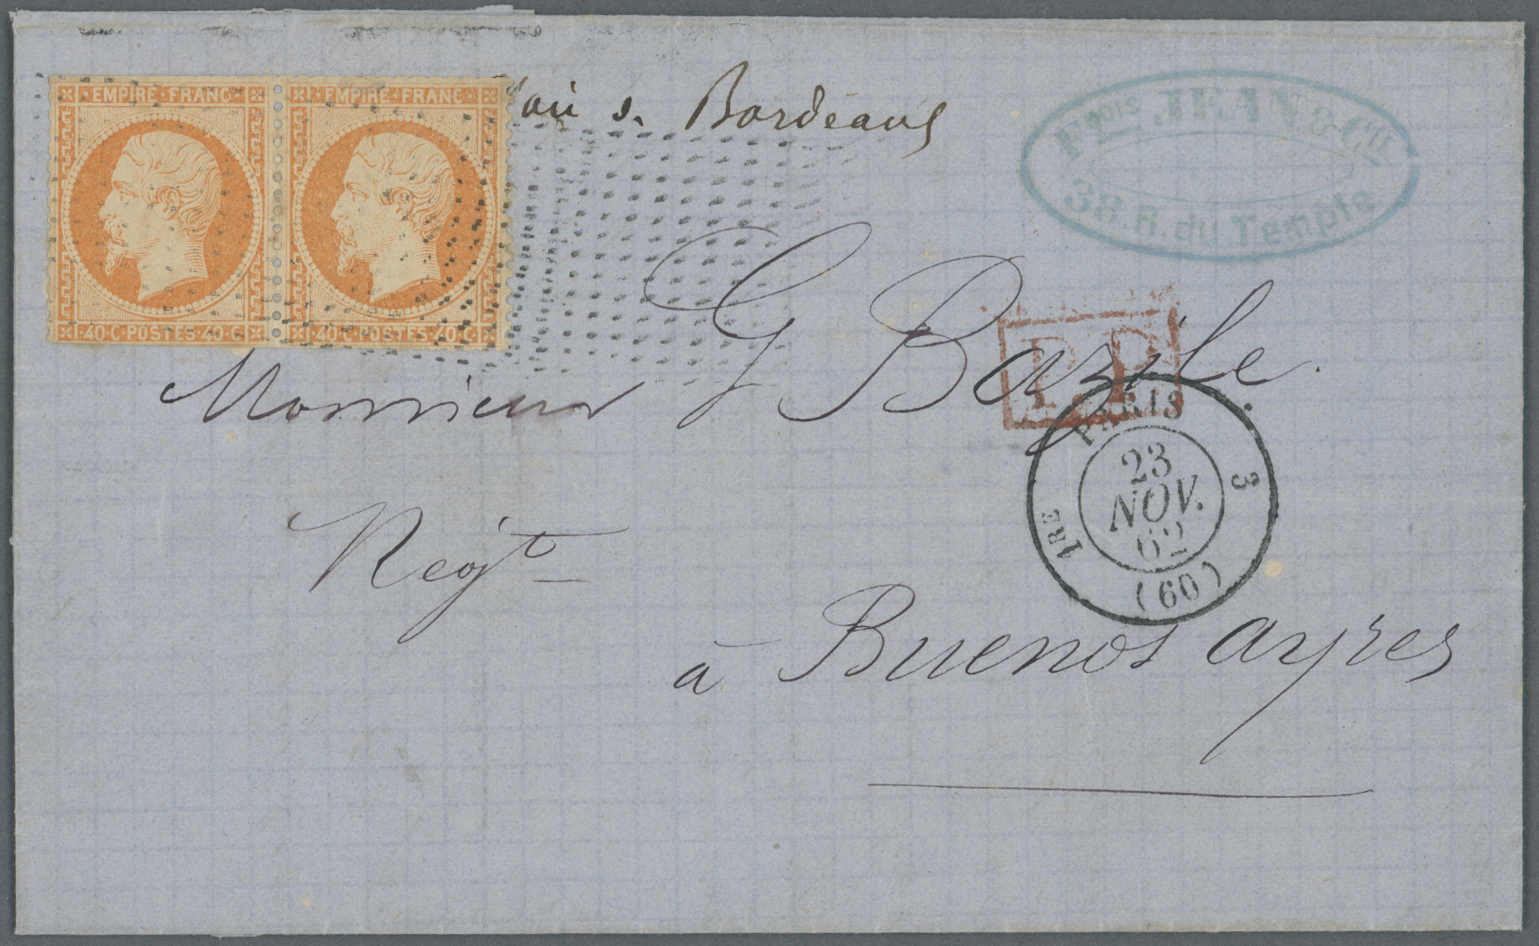 EMPIRE·FRANC· EMPIRE·FRANC·
40·C·POSTES·40·C· 40·C·POSTES·40·C·
s. Bordeaux
Fçois JEAN & Cie
38. R. du Temple
P.P.
Monsieur G Bazile.
PARIS
1RE 3
23
NOV.
62
(60)
Negt
à Buenos ayres